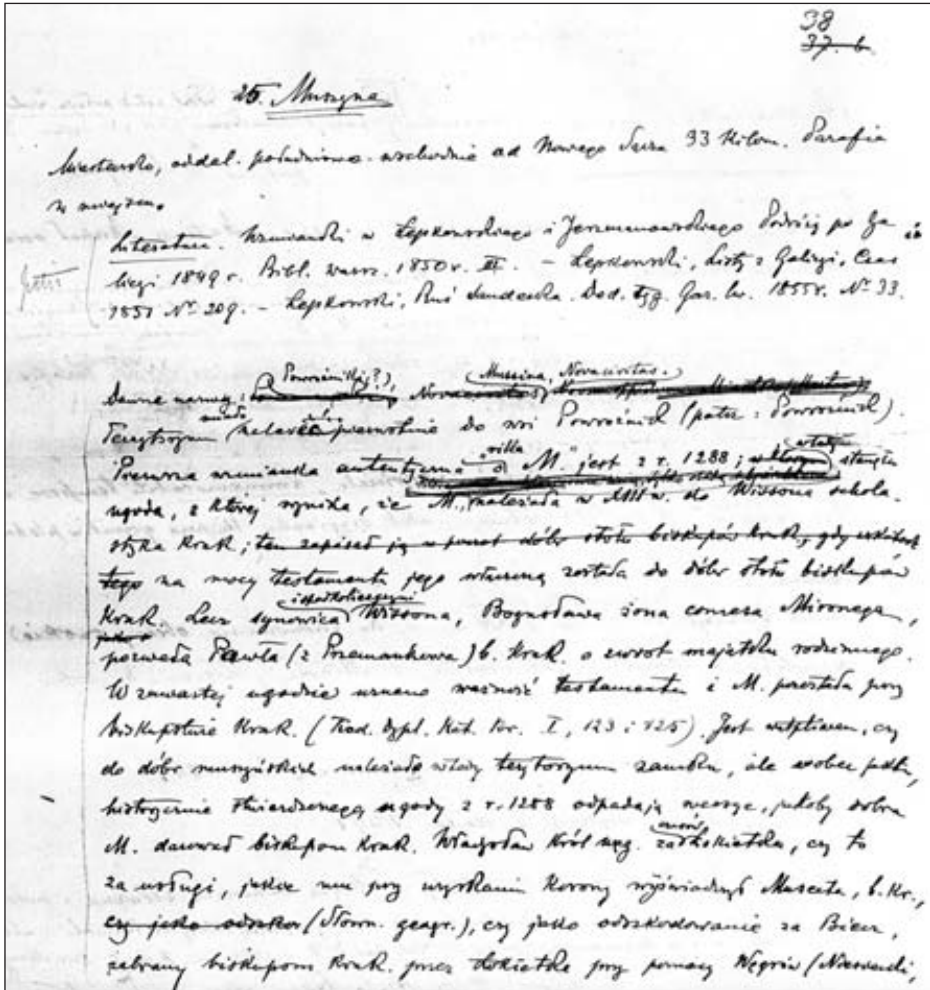 38
37. b.
25. Muszyna
Miasteczko, oddal. południowo-wschodnio od Nowego Sącza 33 kilom. Parafia
w miejscu.
Literatura. Wzmianki w Łepkowskiego i Jerzmanowskiego Podróży po Ga
licyi 1849 r. Bibl. warsz. 1850 r. III. – Łepkowski, Listy z Galicyi, Czas
1851 Nº 209. – Łepkowski, Ruś Sandecka. Dod. tyg. Gaz. lw. 1855 r. Nº 33.
Powroźnik(?), Mussina, Novacivitas.
Dawne nazwy: Novacivitas
Terytoryum należało pierwotnie do wsi Powroźnik (patrz: Powroźnik).
Pierwsza wzmianka autentyczna o „villa M." jest z r. 1288; stanęła
ugoda, z której wynika, że M. należała w XIII w. do Wissona schola-
styka krak; ten zapisał ją w poczet dóbr stołu biskupów krak, gdy
tego na mocy testamentu jego własną została do dóbr stołu biskupów
krak. Lecz synowica Wissona, Bogusława żona comesa Mironega,
pozwała Pawła (z Przemankowa) b. krak. o zwrot majątku rodzinnego.
W zawartej ugodzie uznano ważność testamentu i M. pozostała przy
biskupstwie krak. (Kod. dypl. kat. kr. I, 123 i 125). Jest wątpliwem, czy
do dóbr muszyńskich należało wtedy terytoryum zamku, ale wobec faktu,
historycznie stwierdzonego ugody z r. 1288 odpadają wersye, jakoby dobra
M. darował biskupom krak. Władysław król węg. za Łokietka, czy to
za usługi, jakie mu przy uzyskaniu korony wyświadczył Muscata, b. kr.,
czy jako odszkod (Słown. geogr.), czy jako odszkodowanie za Biecz,
zabrany biskupom krak. przez Łokietka przy pomocy Węgrów (Niesiecki,